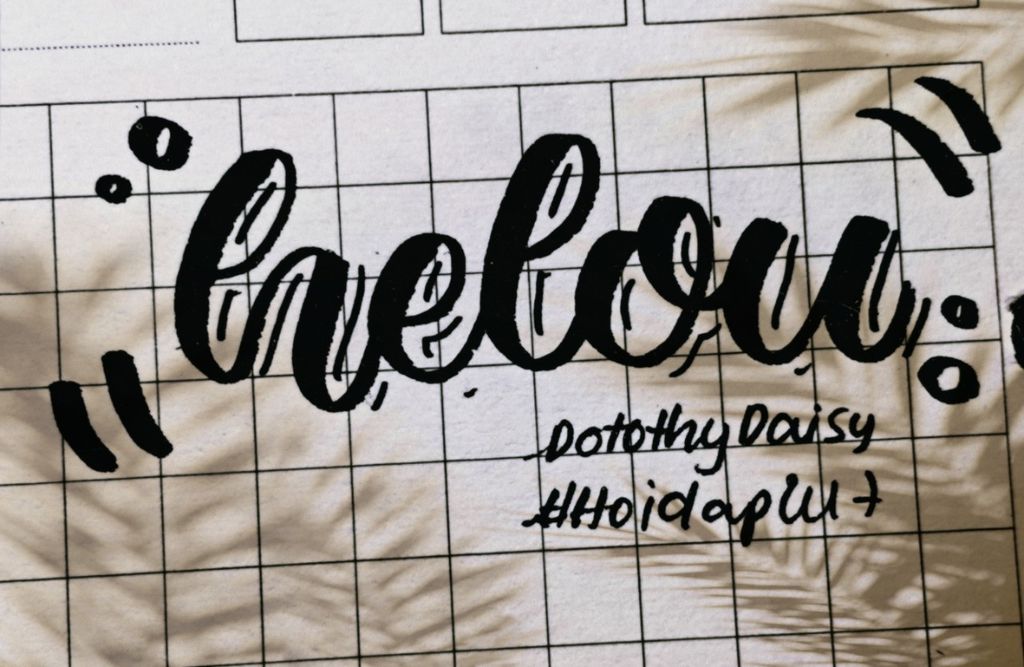 helou
DotothyDaisy
#Hoidap247